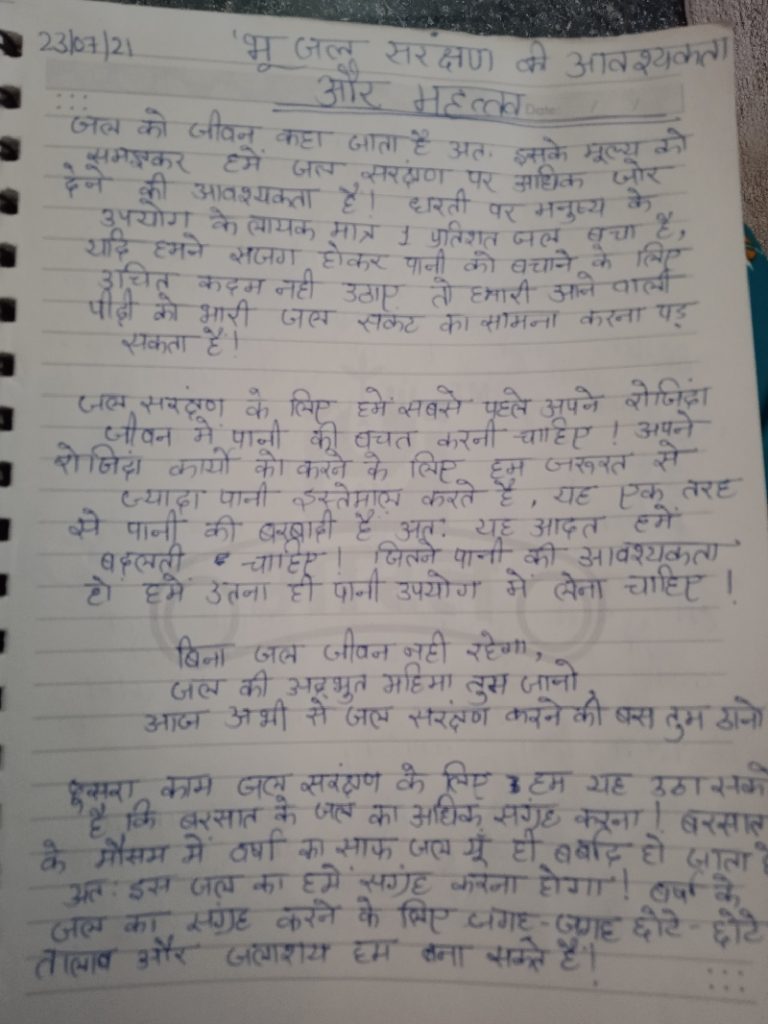 23/07/21 'भू जल सरंक्षण की आवश्यकता
और महत्त्व
Date
जल को जीवन कहा जाता है अत: इसके मूल्य को
समझकर हमें जल सरंक्षण पर अधिक जोर
देने की आवश्यकता है! धरती पर मनुष्य के
उपयोग के लायक मात्र 1 प्रतिशत जल बचा है,
यदि हमने सजग होकर पानी को बचाने के लिए
उचित कदम नही उठाए तो हमारी आने वाली
पीढ़ी को भारी जल संकट का सामना करना पड़
सकता है!
जल सरंक्षण के लिए हमें सबसे पहले अपने रोजिंदा
जीवन में पानी की बचत करनी चाहिए! अपने
रोजिंदा कार्यो को करने के लिए हम जरूरत से
ज्यादा पानी इस्तेमाल करते है, यह एक तरह
से पानी की बरबादी है अत: यह आदत हमें
बदलती चाहिए! जितने पानी की आवश्यकता
हो हमें उतना ही पानी उपयोग में लेना चाहिए!
बिना जल जीवन नही रहेगा,
जल की अद्भुत महिमा तुम जानो,
आज अभी से जल सरंक्षण करने की बस तुम ठानो
दुसरा काम जल सरंक्षण के लिए हम यह उठा सकते
है कि बरसात के जल का अधिक संग्रह करना! बरसात
के मौसम में वर्षा का साफ जल यूँ ही बर्बाद हो जाता है
अत: इस जल का हमें संग्रह करना होगा! वर्षा के
जल का संग्रह करने के लिए जगह-जगह छोटे-छोटे
तालाब और जलाशय हम बना सकते है!